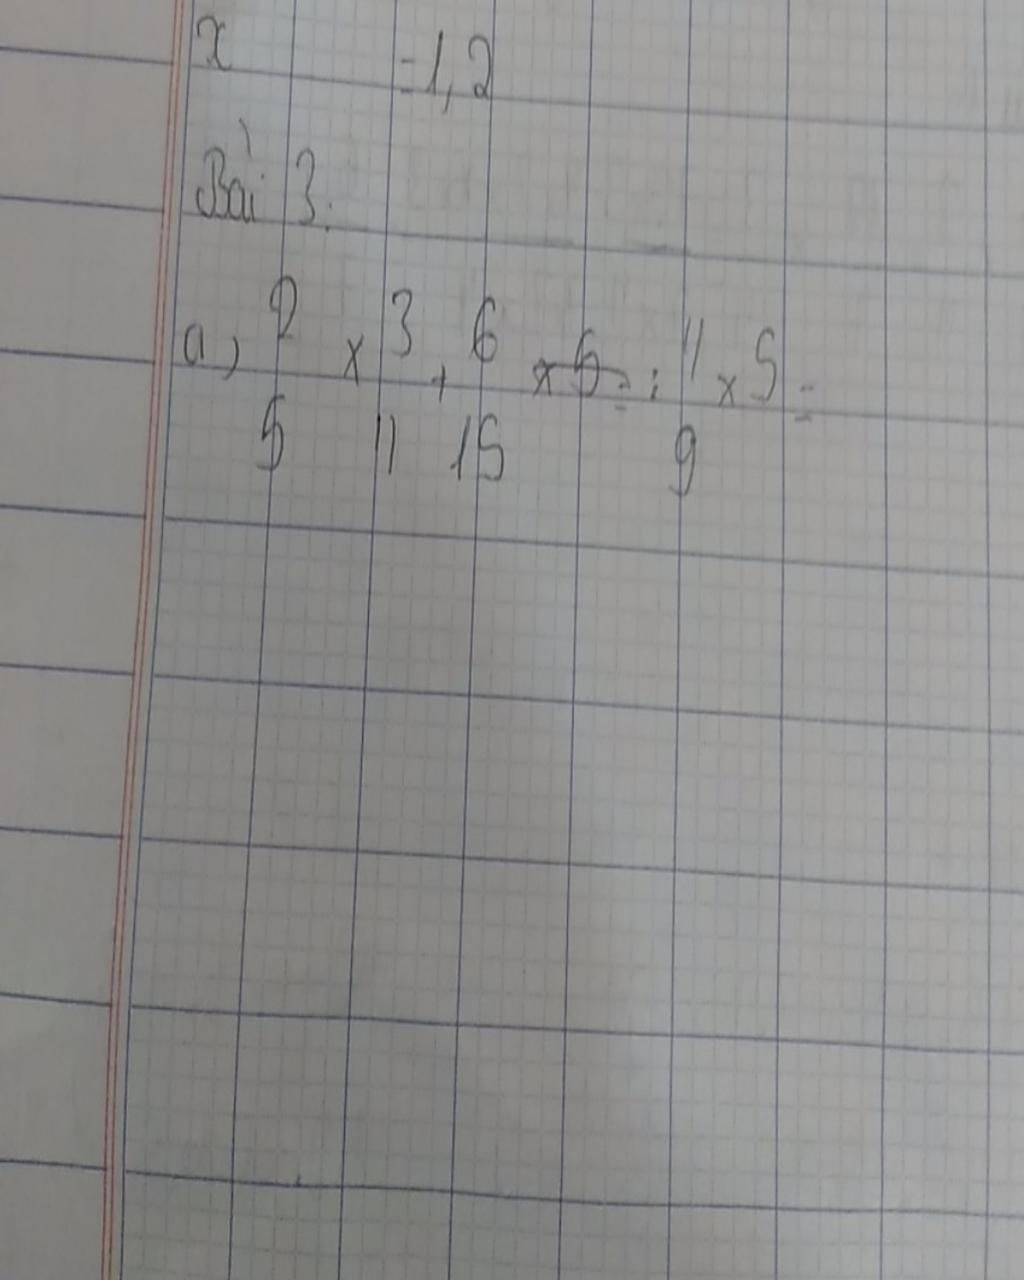 x = 1,2
Bài 3:
a, 2/5 x 3/11 + 6/15 x 5 = : 11/9 x 5 =